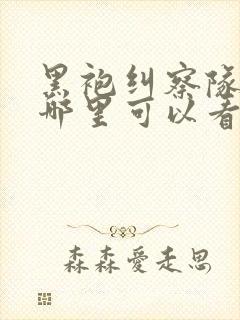 黑袍纠察队
哪里可以看
森森爱走思